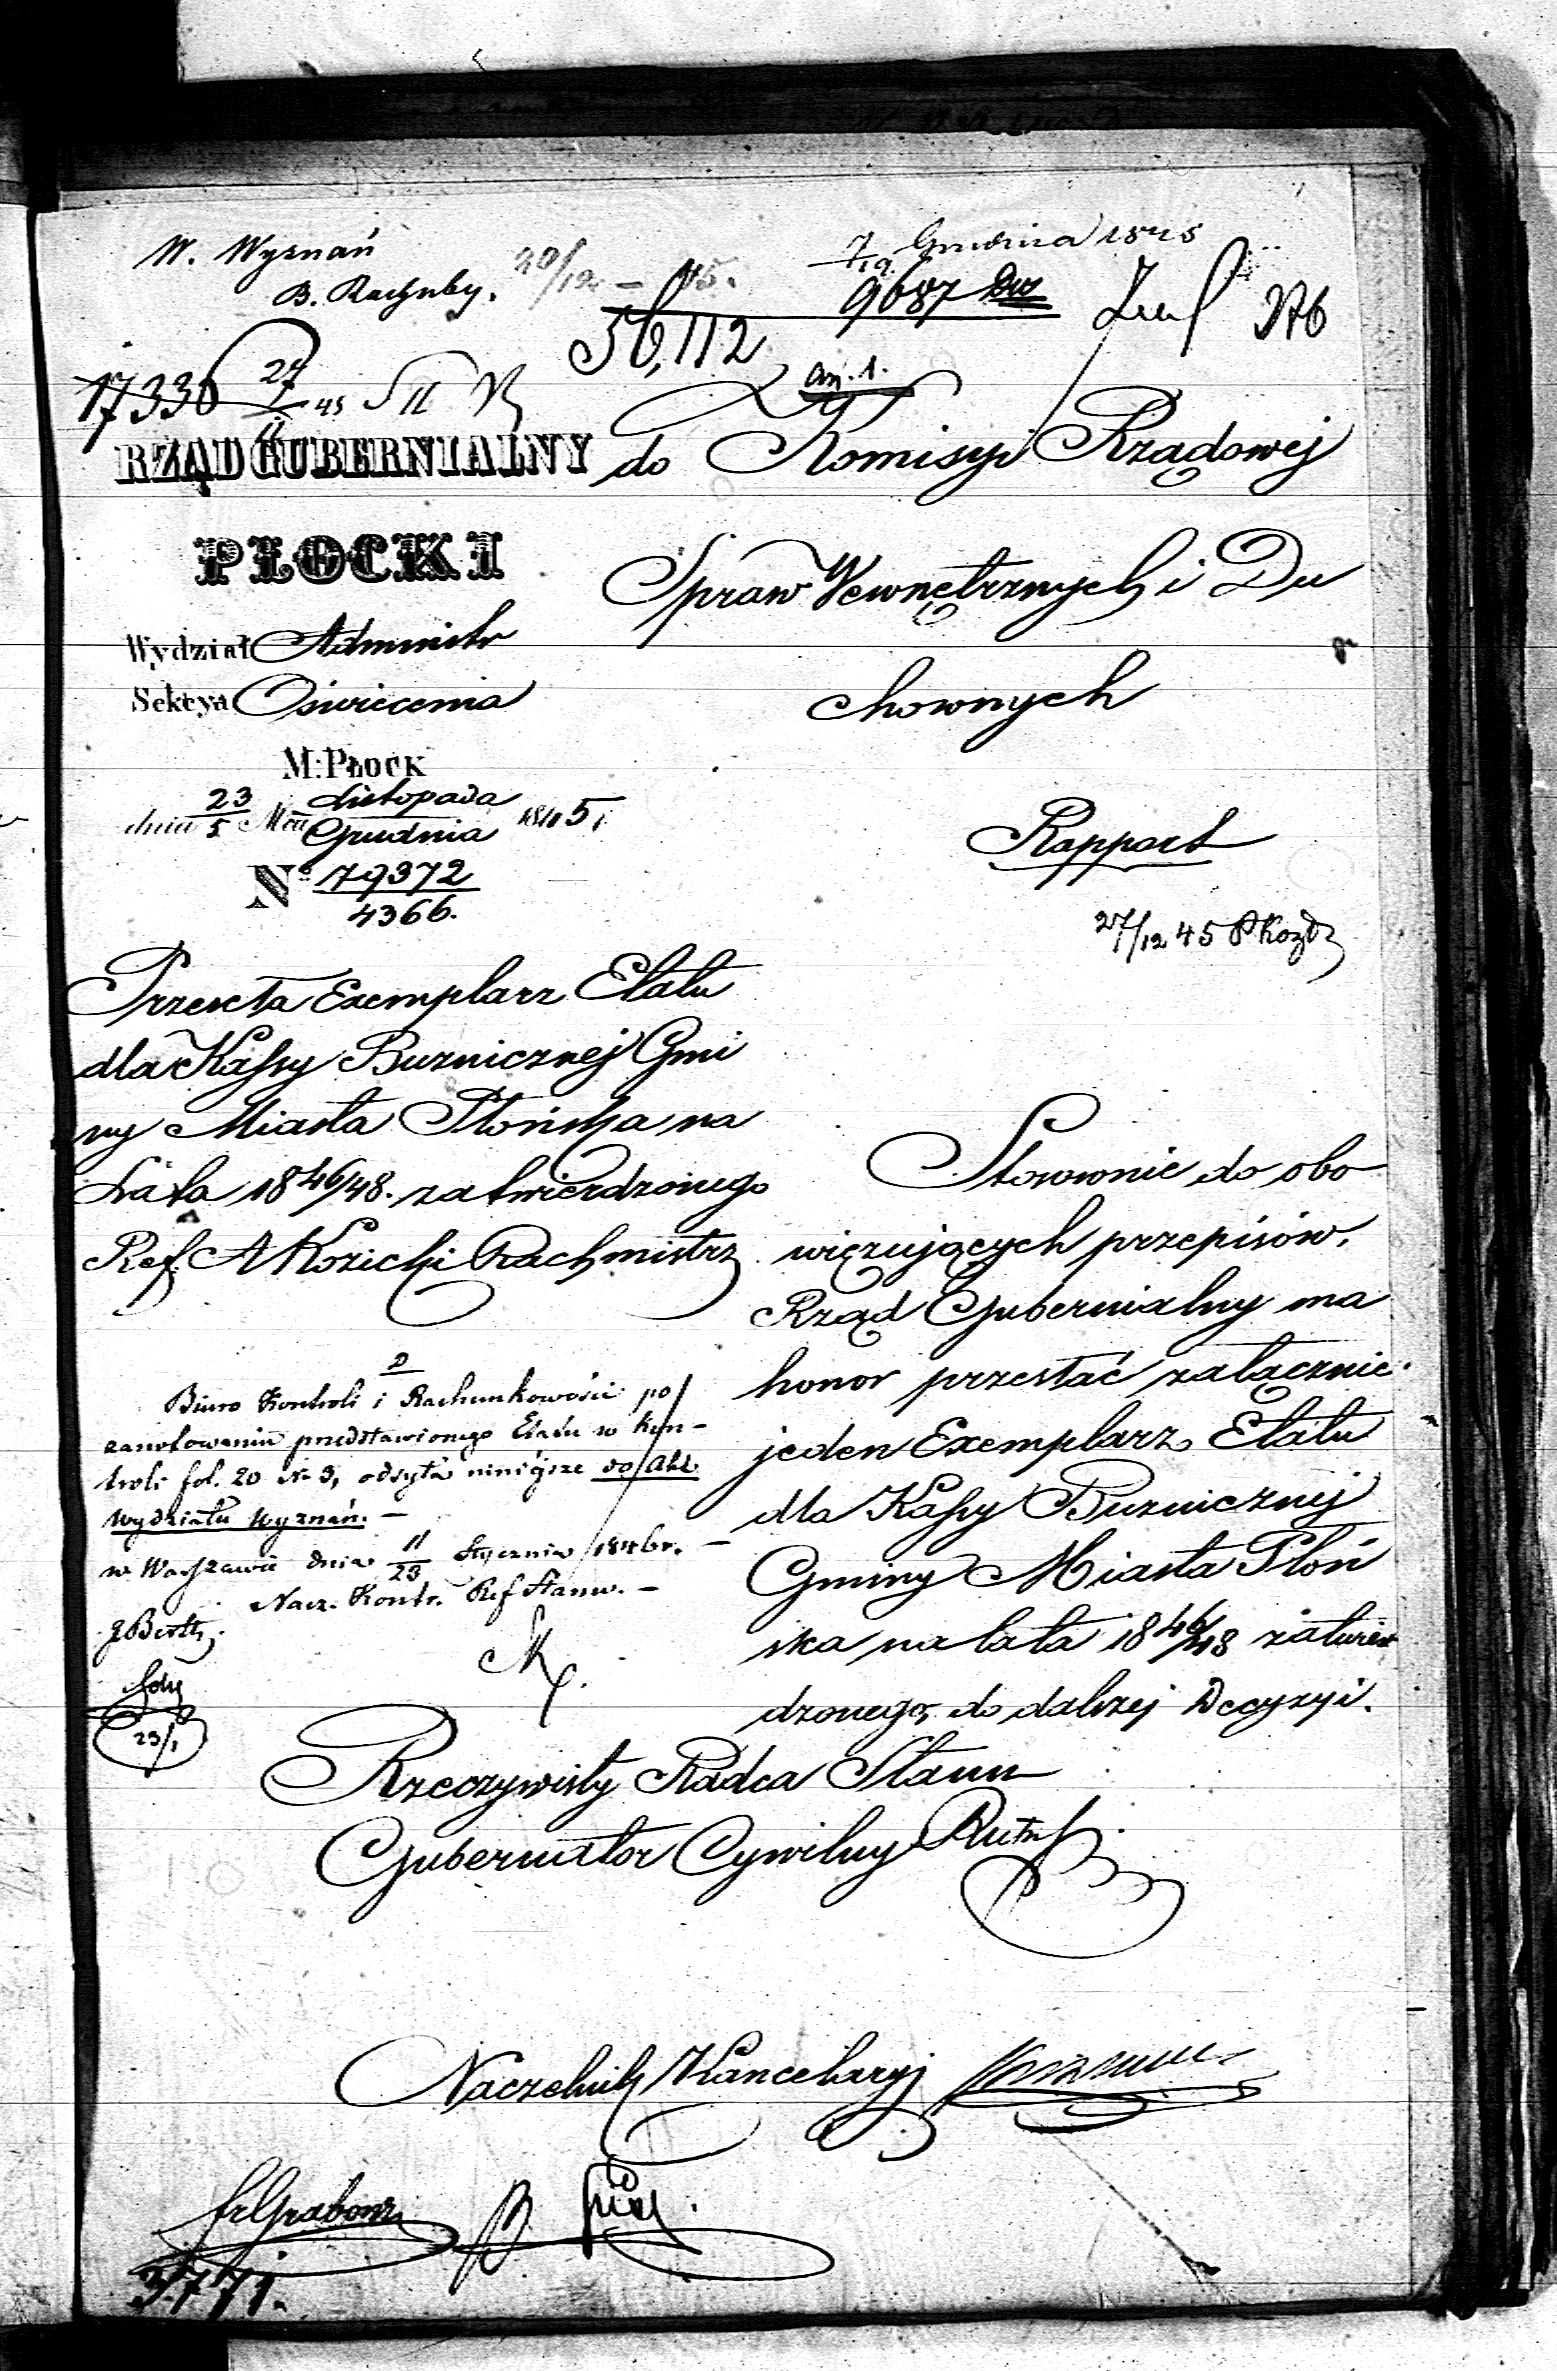 W. Wyznań
B. Rachuby.
20/12 – 45.
7/19 Grudnia 1845
9687
56,112
376
17336 27/11 45 S II
an. 1.
RZĄD GUBERNIALNY
PŁOCKI
Wydział Administr
Sekcya Oświecenia
M: PŁOCK
dnia 23/5 Mca Listopada/Grudnia 1845 r
No 79372/4366.
do Komisyi Rządowej
Spraw Wewnętrznych i Du
chownych
Rapport
27/12 45
Przesyła Exemplarz Etatu
dla Kassy Bużnicznej Gmi
ny Miasta Płońska na
Lata 1846/48. zatwierdzonego
Ref. A Kozicki Rachmistrz
Biuro Kontroli i Rachunkowości po
zanotowaniu przedstawionego Etatu w Kon-
troli fol. 20 No 3, odsyła niniejsze do Akt
Wydziału Wyznań. –
w Warszawie dnia 11/23 Stycznia 1846 r. –
Nacz. Kontr. Ref Stanu. –
23/1
Stosownie do obo
więzujących przepisów,
Rząd Gubernialny ma
honor przesłać załącznie
jeden Exemplarz Etatu
dla Kassy Bużnicznej
Gminy Miasta Płoń
ska na lata 1846/48 zatwier
dzonego, do dalszej Decyzyi.
Rzeczywisty Radca Stanu
Gubernator Cywilny
Naczelnik Kancelaryj
3771.